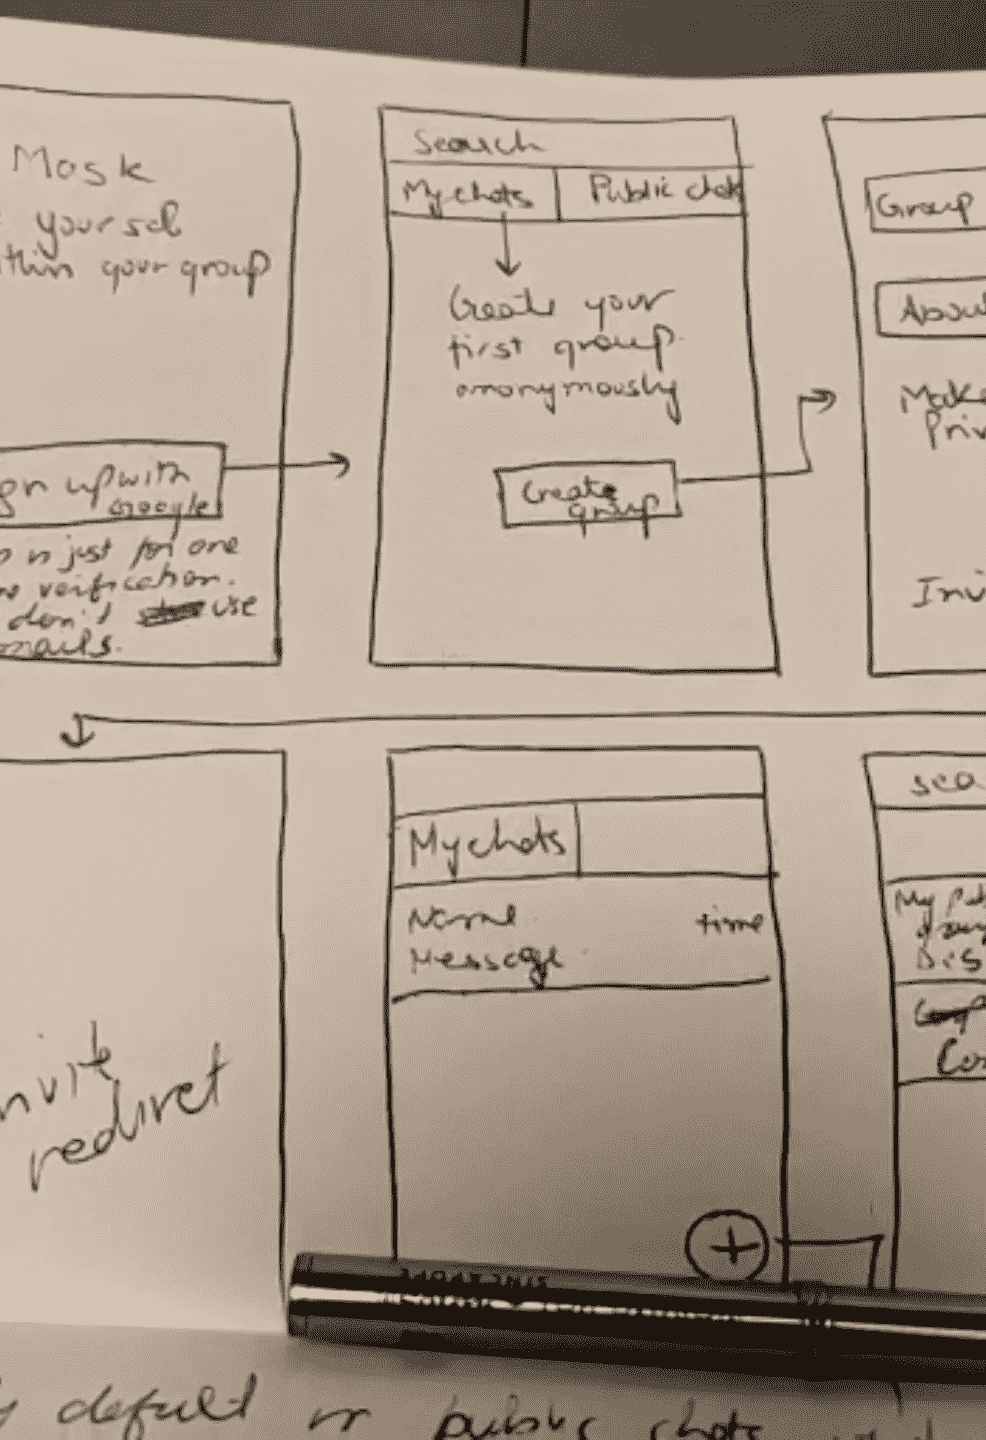 Mask
yoursel
thin your group
gn up with
Google
is just for one
verification.
don't use
mails.
Search
My chats
Public chat
Create your
first group
anonymously
Create
group
Group
About
Make
Priv
Invi
nvite
redirect
My chats
Name
time
Message
sea
My Pub
Des
Con
defult in public chats